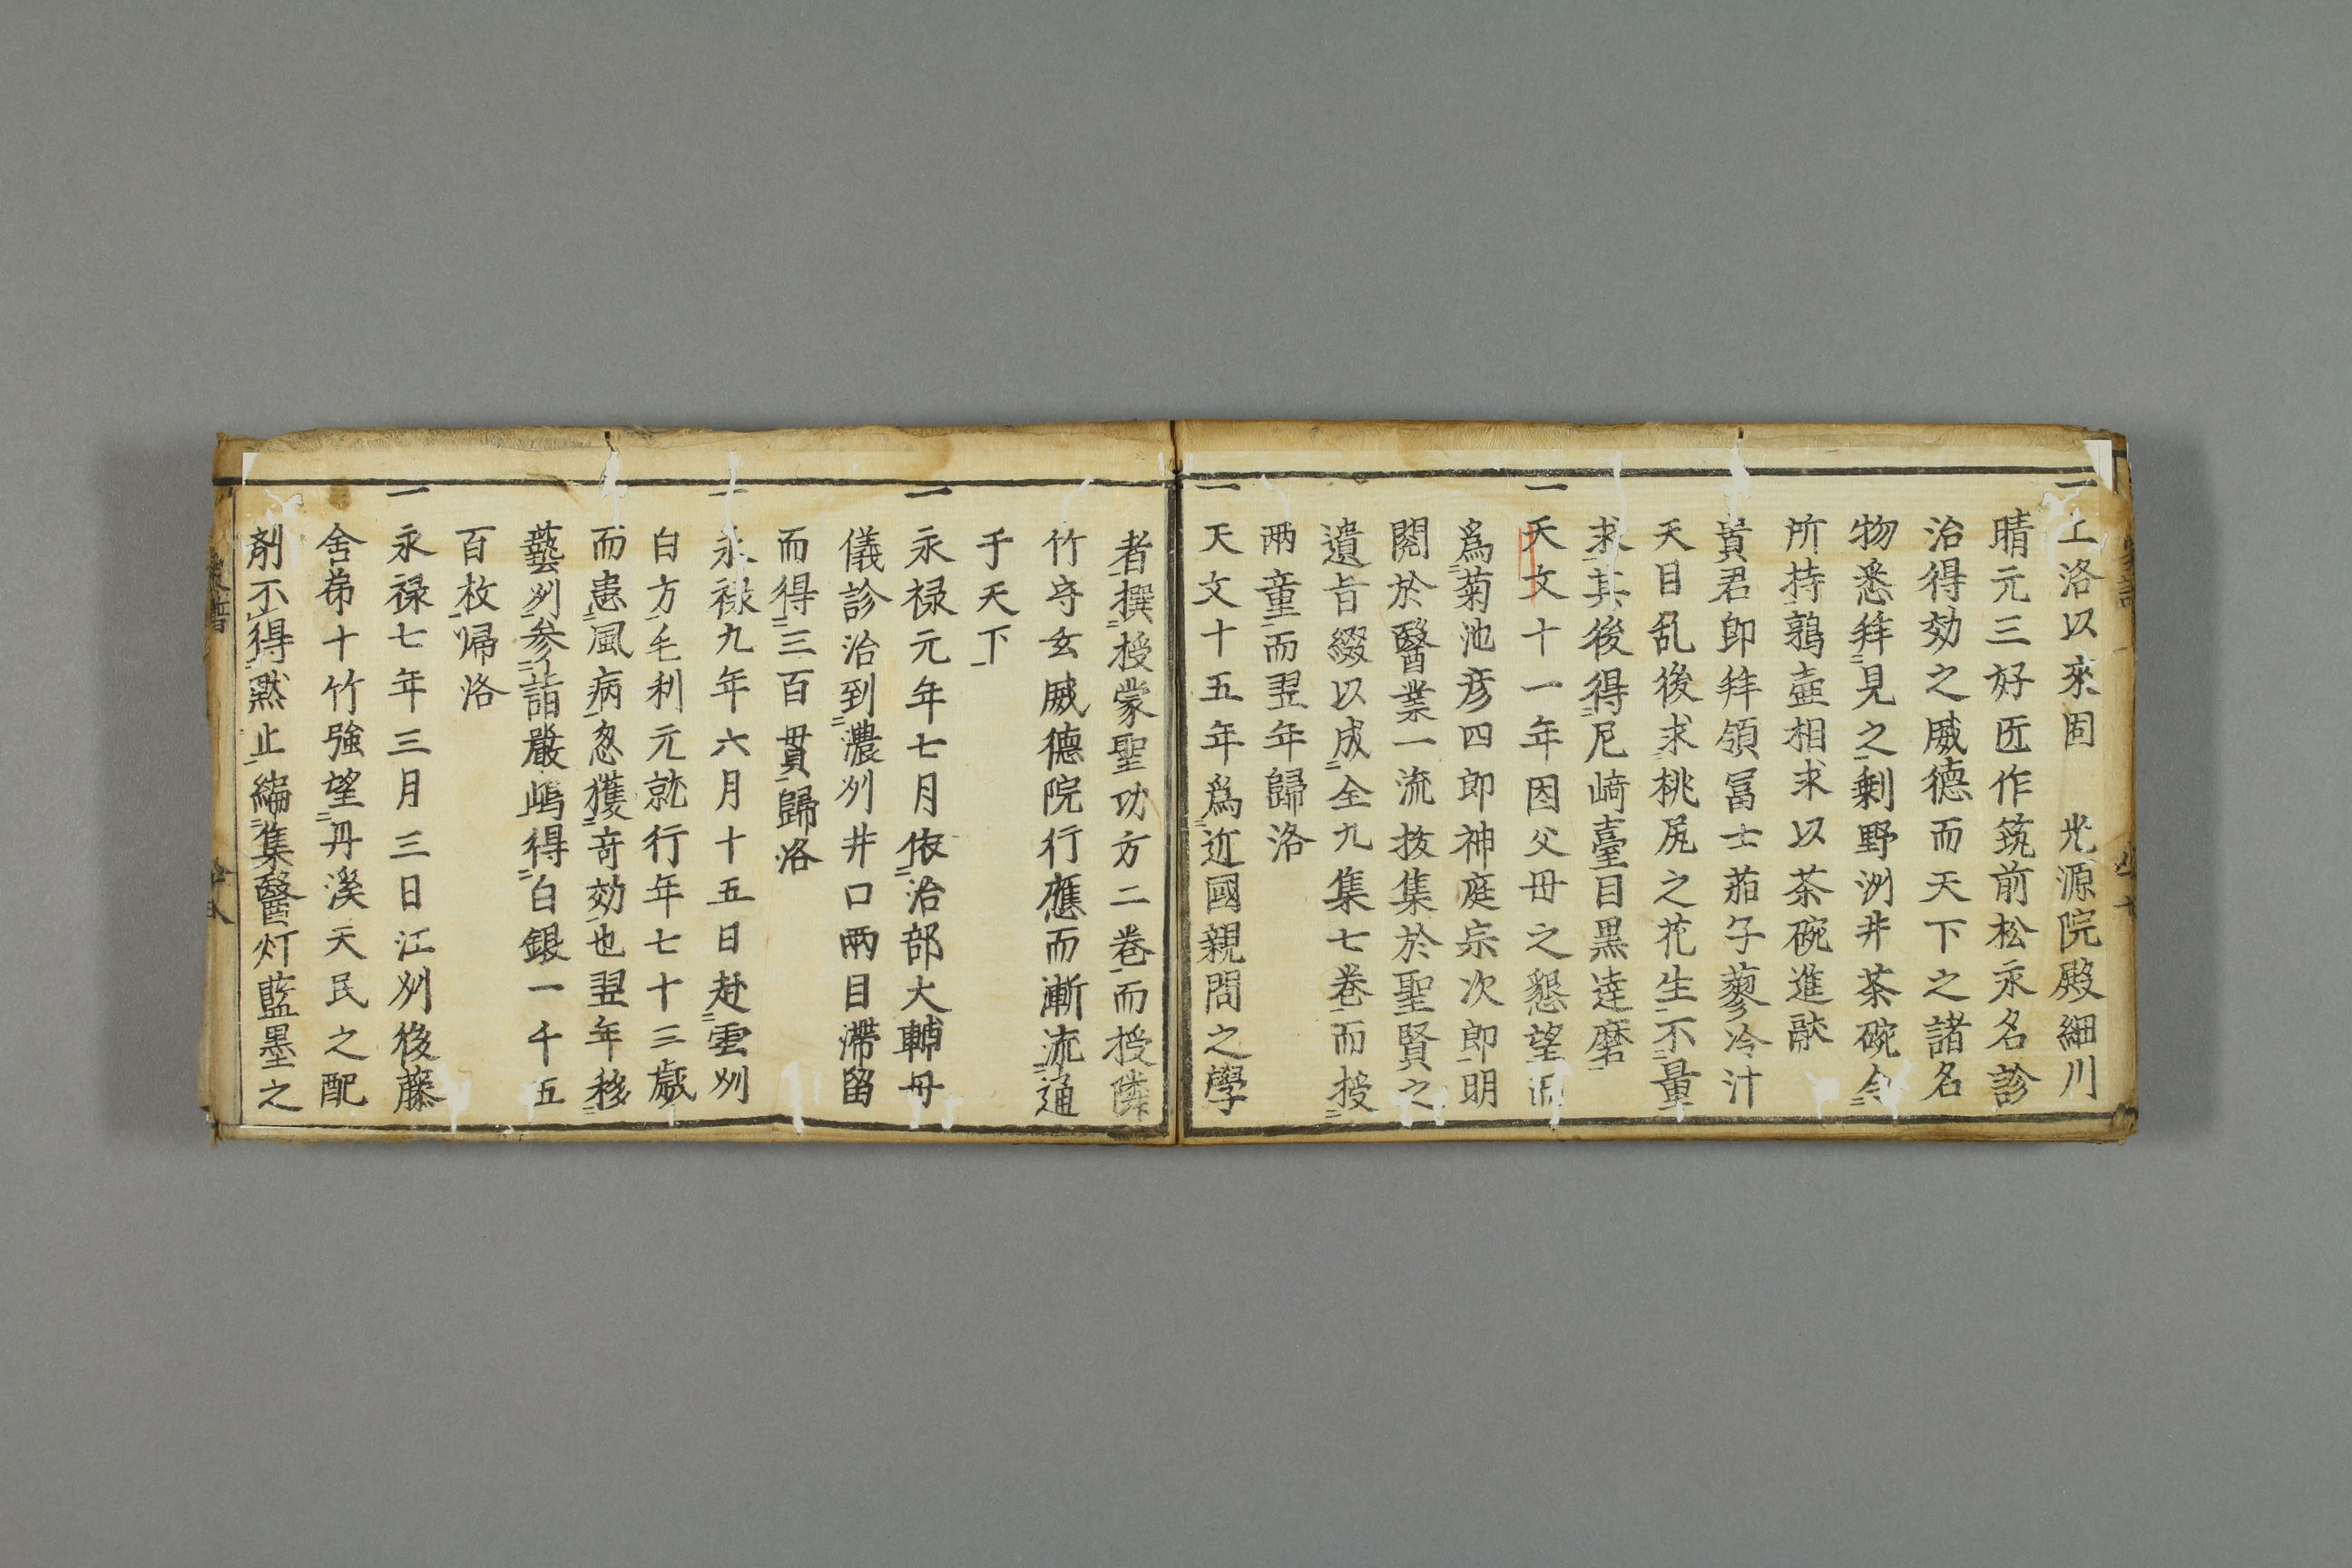 一上洛以來固 光源院殿細川
晴元三好匠作筑前松永名診
治得効之威德而天下之諸名
物悉拝見之剰野洲井茶碗令
所持鶉壷相求以茶碗進献
貴君即拝領冨士茄子蓼冷汁
天目乱後求桃尻之花生不量
求其後得尼﨑臺目黒達磨
一天文十一年因父母之懇望而
爲菊池彦四郎神庭宗次郎明
閲於醫業一流抜集於聖賢之
遺旨綴以成全九集七卷而授
両童而翌年歸洛
一天文十五年爲近國親問之學
者撰授蒙聖功方二卷而授隣
竹守玄威德院行應而漸流通
于天下
一永禄元年七月依治部大輔母
儀診治到濃刕井口両目滯留
而得三百貫歸洛
一永禄九年六月十五日赴雲刕
白方毛利元就行年七十三歳
而患風病忽獲奇効也翌年移
藝刕参詣嚴嶋得白銀一千五
百枚帰洛
一永禄七年三月三日江刕後藤
舎弟十竹強望丹溪天民之配
剤不得黙止編集醫灯藍墨之